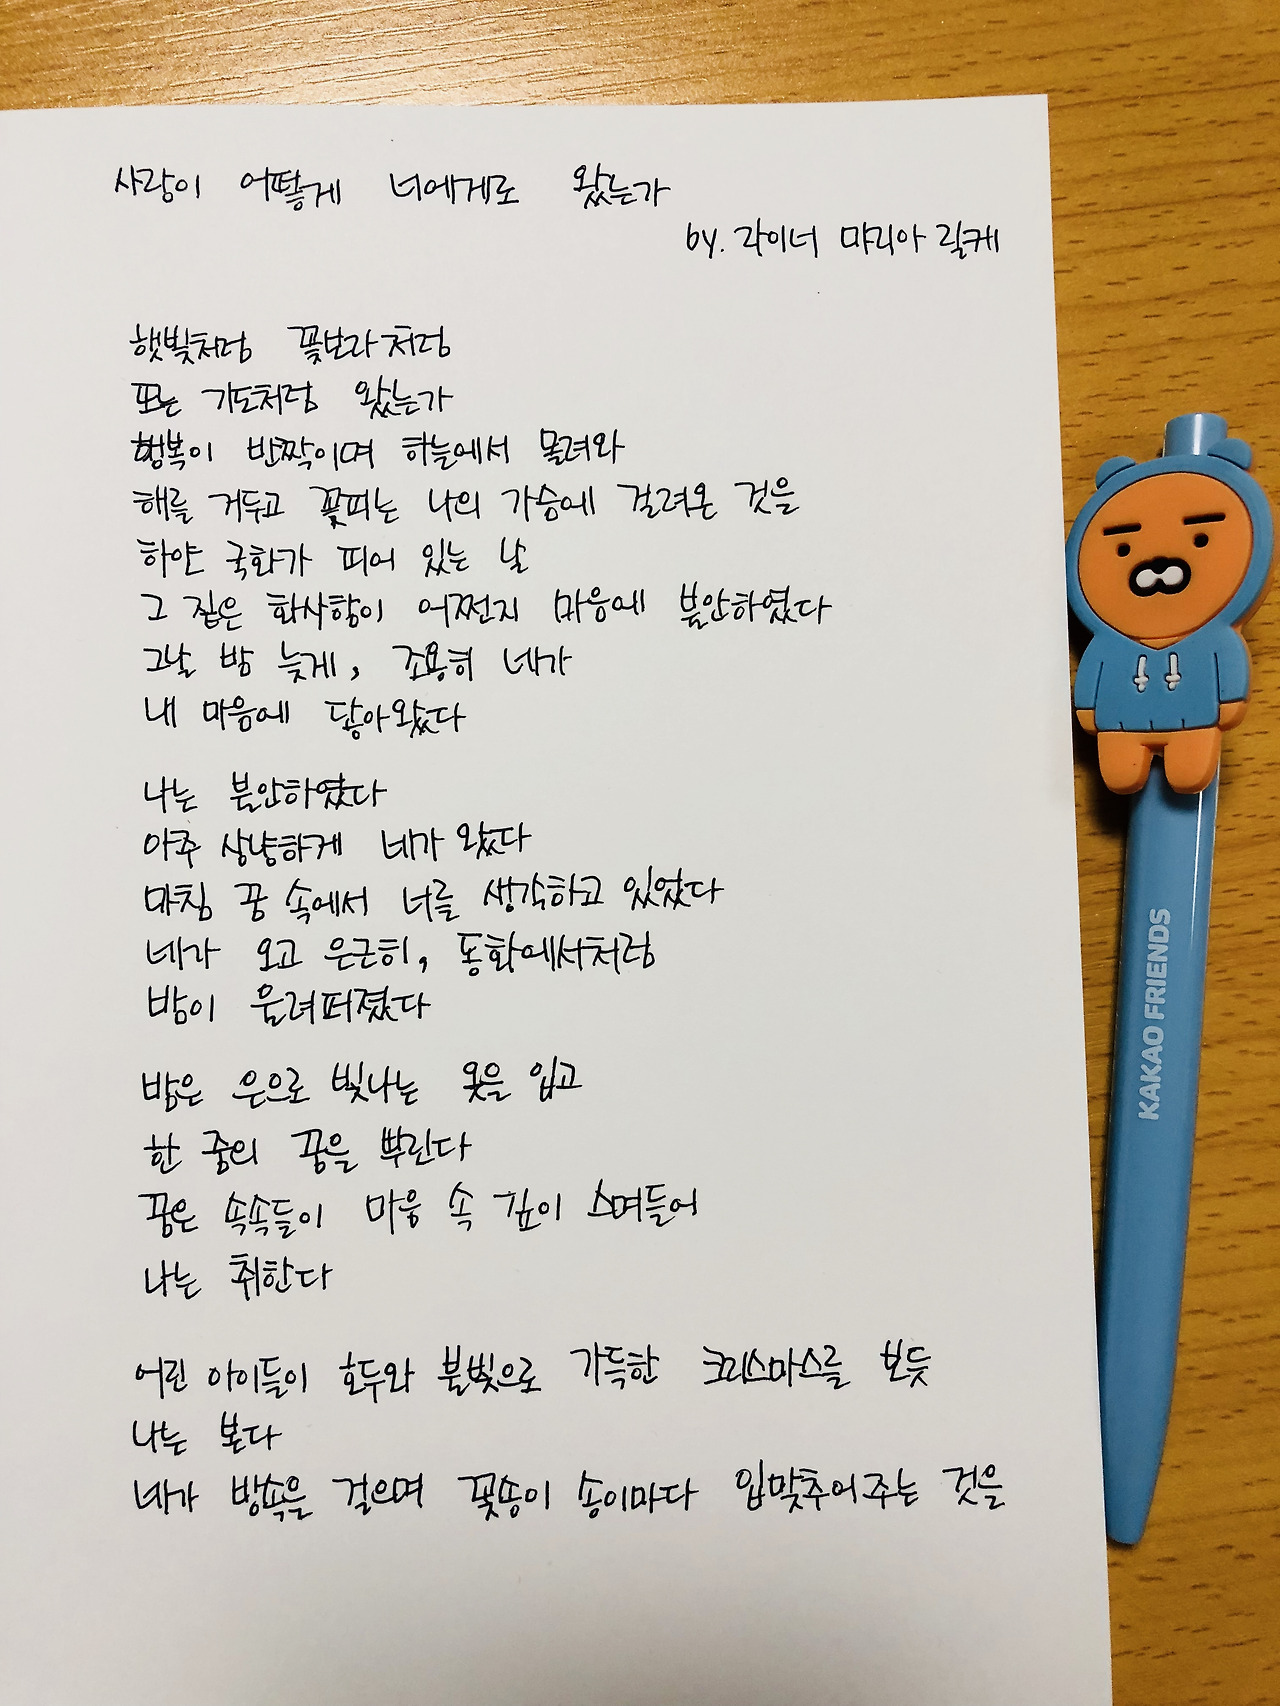 사랑이 어떻게 너에게로 왔는가
by. 라이너 마리아 릴케
햇빛처럼 꽃보라처럼
또는 기도처럼 왔는가
행복이 반짝이며 하늘에서 몰려와
해를 거두고 꽃피는 나의 가슴에 걸려온 것을
하얀 국화가 피어 있는 날
그 짙은 화사함이 어쩐지 마음에 불안하였다
그날 밤 늦게, 조용히 네가
내 마음에 닿아왔다
나는 불안하였다
아주 상냥하게 네가 왔다
마침 꿈 속에서 너를 생각하고 있었다
네가 오고 은근히, 동화에서처럼
밤이 울려퍼졌다
밤은 은으로 빛나는 옷을 입고
한 줌의 꿈을 뿌린다
꿈은 속속들이 마음 속 깊이 스며들어
나는 취한다
어린 아이들이 호두와 불빛으로 가득한 크리스마스를 보듯
나는 본다
네가 밤속을 걸으며 꽃송이 송이마다 입맞추어주는 것을
KAKAO FRIENDS